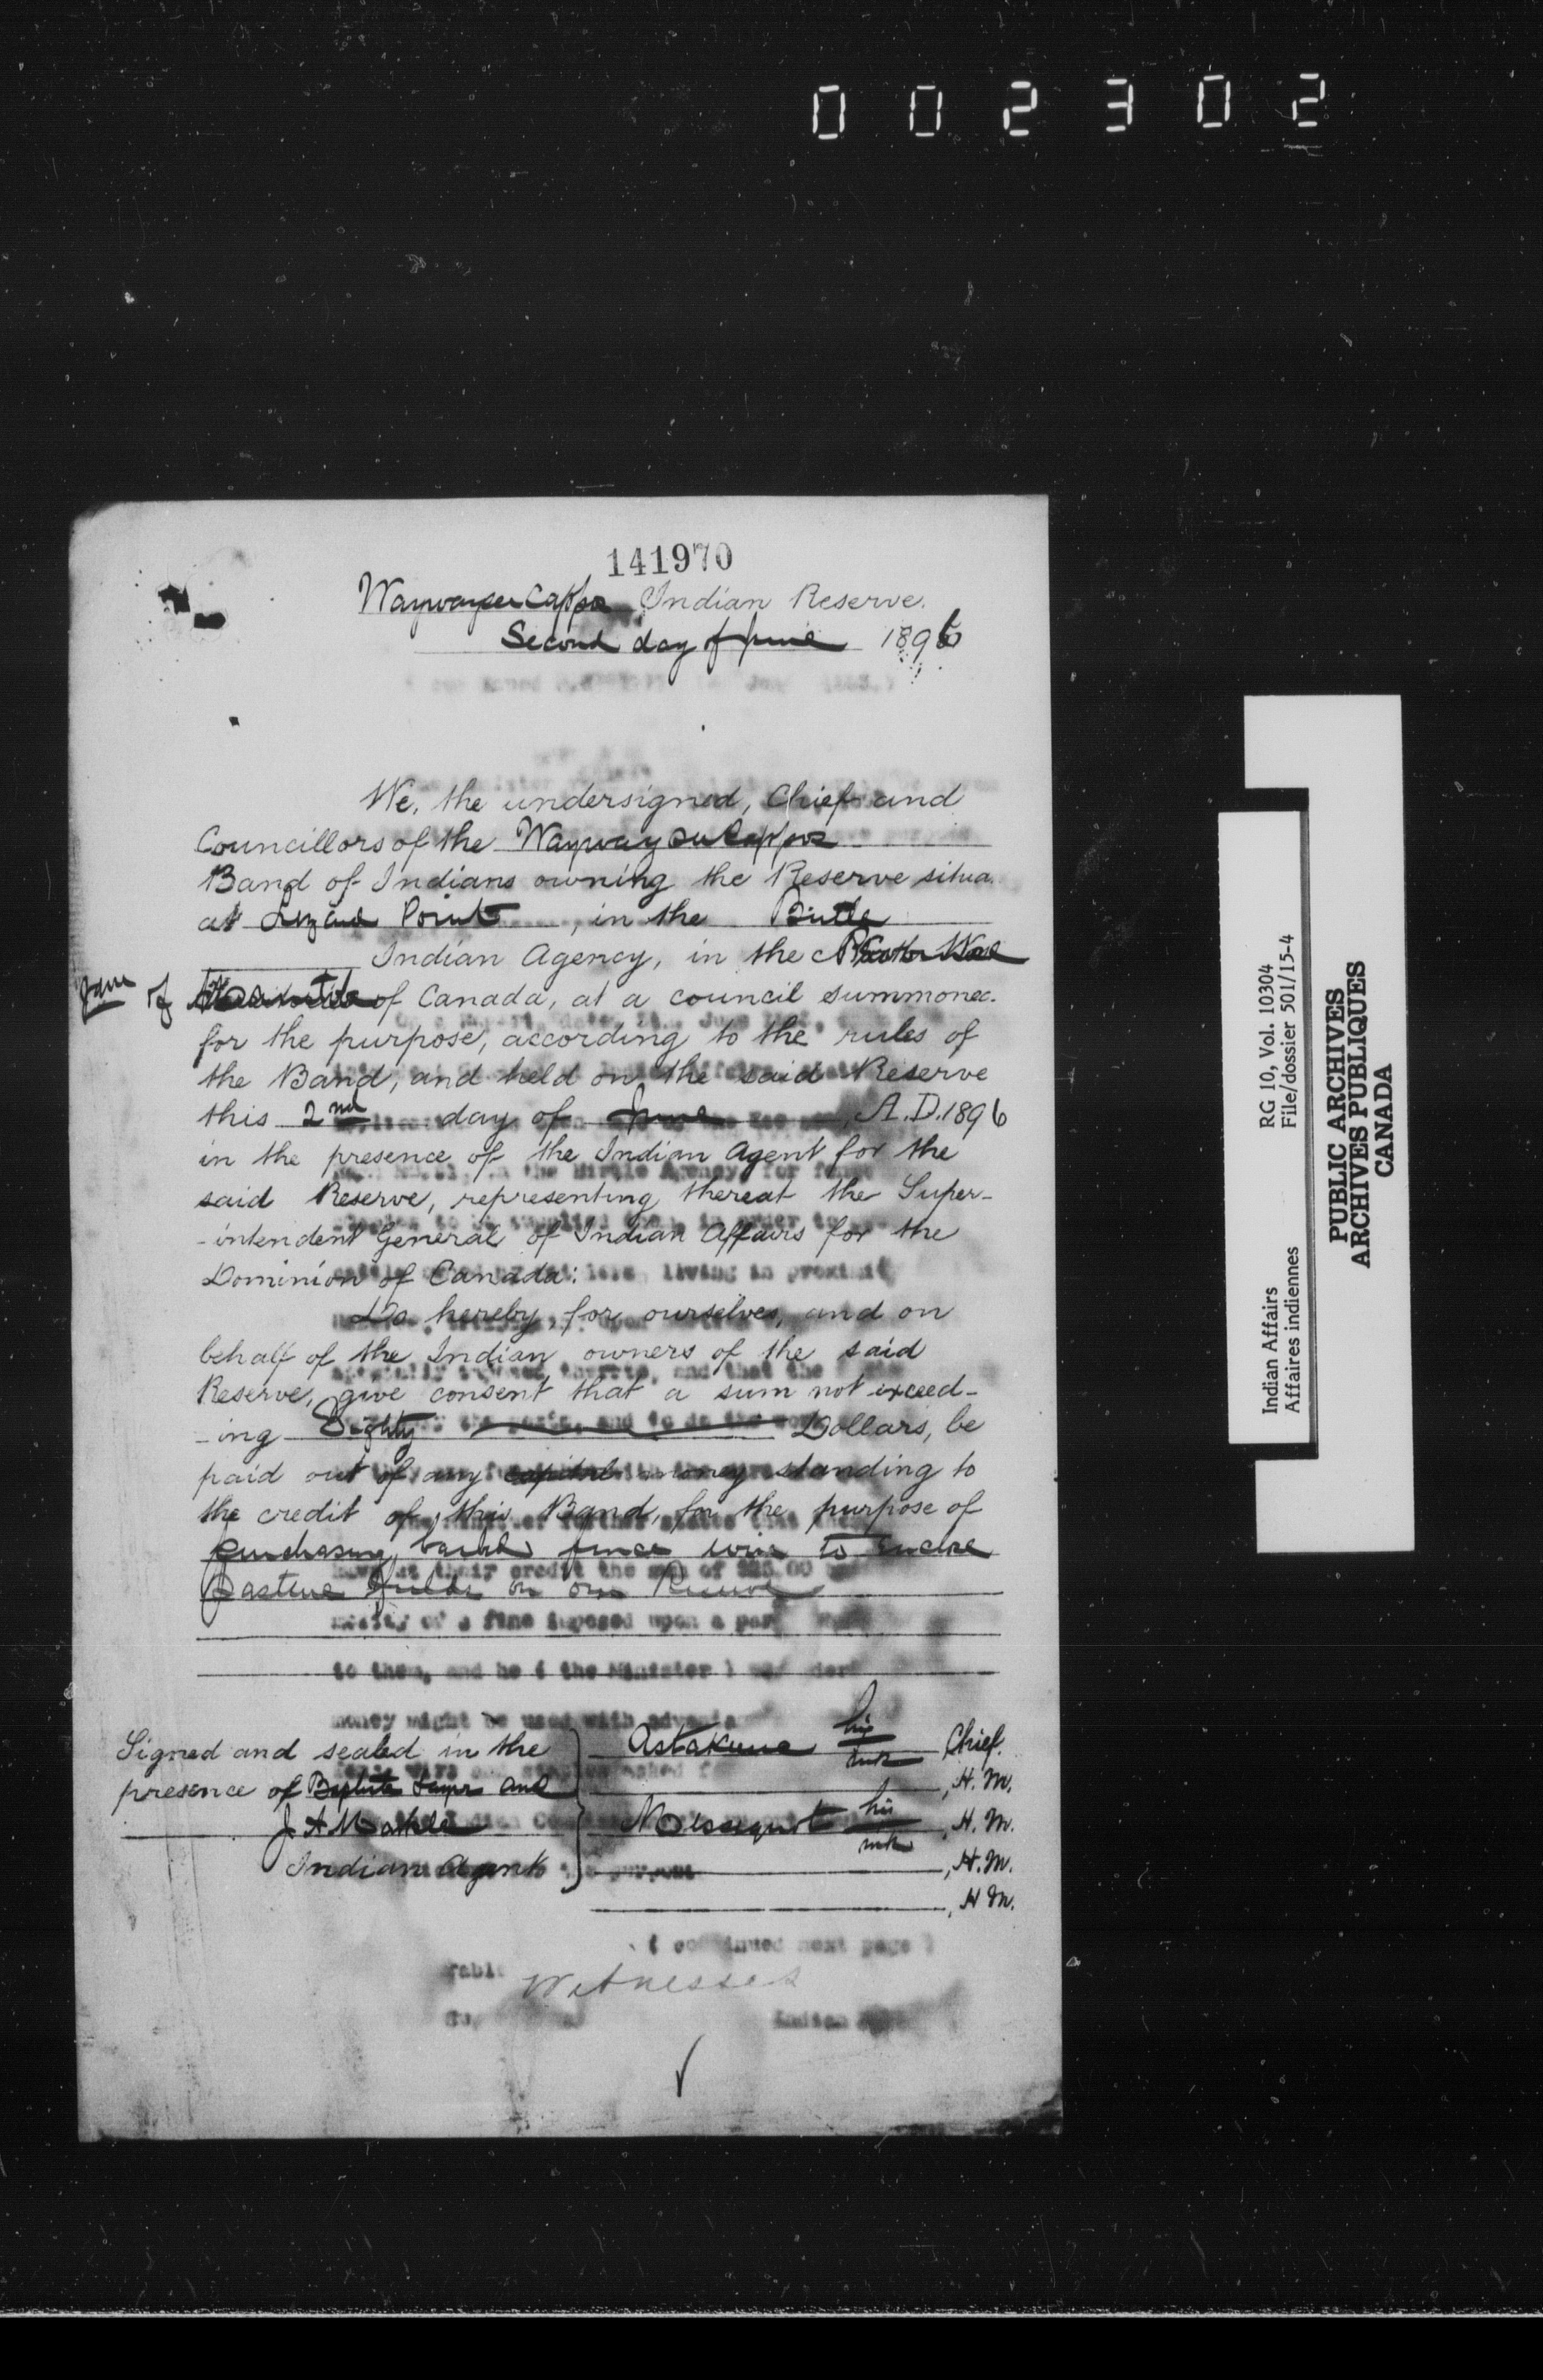 002302
141970
Waywayseecappo Indian Reserve.
Second day of June 1896
We, the undersigned, Chief and
Councillors of the Waywayseecappo
Band of Indians owning the Reserve situa
at Lizard Point, in the Birtle
Indian Agency, in the
of Manitoba of Canada, at a council summoned
for the purpose, according to the rules of
the Band, and held on the said Reserve
this 2nd day of June, A.D. 1896
in the presence of the Indian Agent for the
said Reserve, representing thereat the Super-
-intendent General of Indian Affairs for the
Dominion of Canada:
Do hereby, for ourselves, and on
behalf of the Indian owners of the said
Reserve, give consent that a sum not exceed-
-ing Eighty Dollars, be
paid out of any capital money standing to
the credit of this Band, for the purpose of
purchasing barbed fence wire to enclose
Pasture fields on our Reserve
Signed and sealed in the
presence of and
J A Markle
Indian Agent
Astakeesic his mk Chief.
, H.M.
his mk, H.M.
, H.M.
, H.M.
( continued next page )
Witnesses
Indian Affairs RG 10, Vol. 10304
Affaires indiennes File/dossier 501/15-4
PUBLIC ARCHIVES
ARCHIVES PUBLIQUES
CANADA